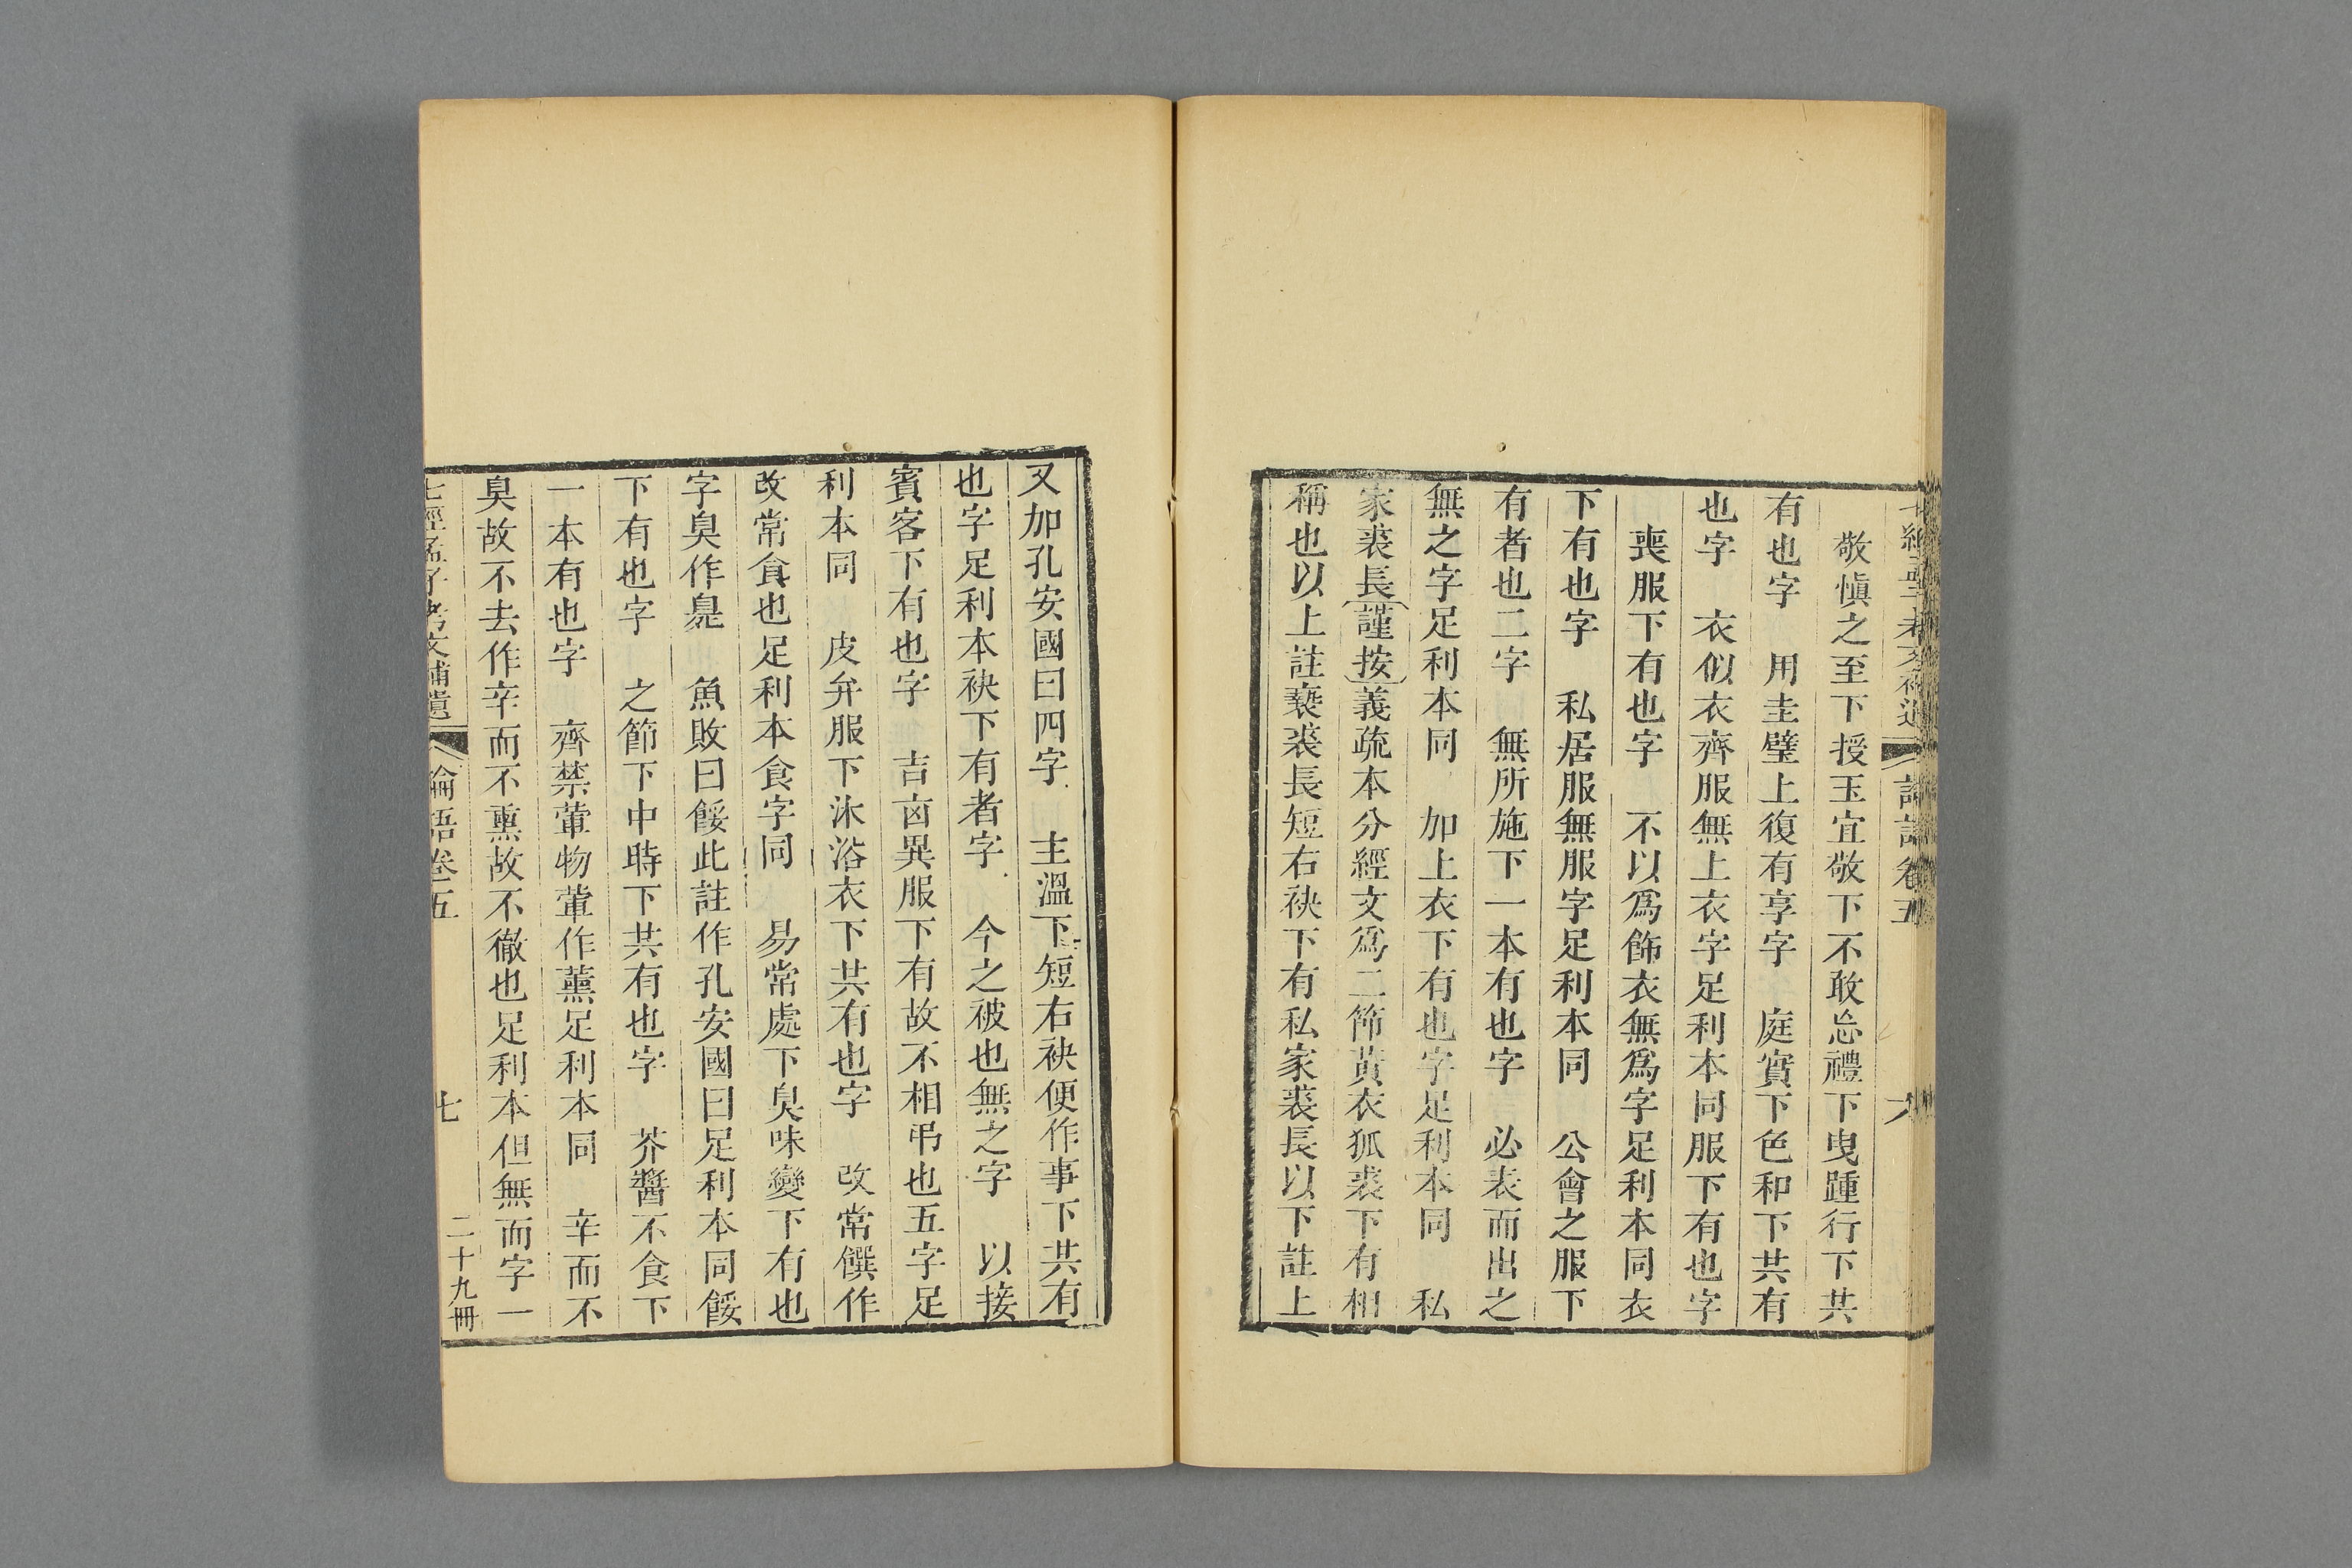 敬愼之至下授玉宜敬下不敢忘禮下曳踵行下共
有也字　用圭璧上復有享字　庭實下色和下共有
也字　衣似衣齊服無上衣字足利本同服下有也字
喪服下有也字　不以爲飾衣無爲字足利本同衣
下有也字　私居服無服字足利本同　公會之服下
有者也二字　無所施下一本有也字　必表而出之
無之字足利本同　加上衣下有也字足利本同　私
家裘長〔謹按〕義疏本分經文爲二節黃衣狐裘下有相
稱也以上註褻裘長短右袂下有私家裘長以下註上
又加孔安國曰四字　主溫下短右袂便作事下共有
也字足利本袂下有者字　今之被也無之字　以接
賓客下有也字　吉凶異服下有故不相弔也五字足
利本同　皮弁服下沐浴衣下共有也字　改常饌作
改常食也足利本食字同　易常處下臭味變下有也
字臭作臰　魚敗曰餒此註作孔安國曰足利本同餒
下有也字　之節下中時下共有也字　芥醬不食下
一本有也字　齊禁葷物葷作薰足利本同　辛而不
臭故不去作辛而不熏故不徹也足利本但無而字一
七經孟子考文補遺　論語卷五　七　二十九冊